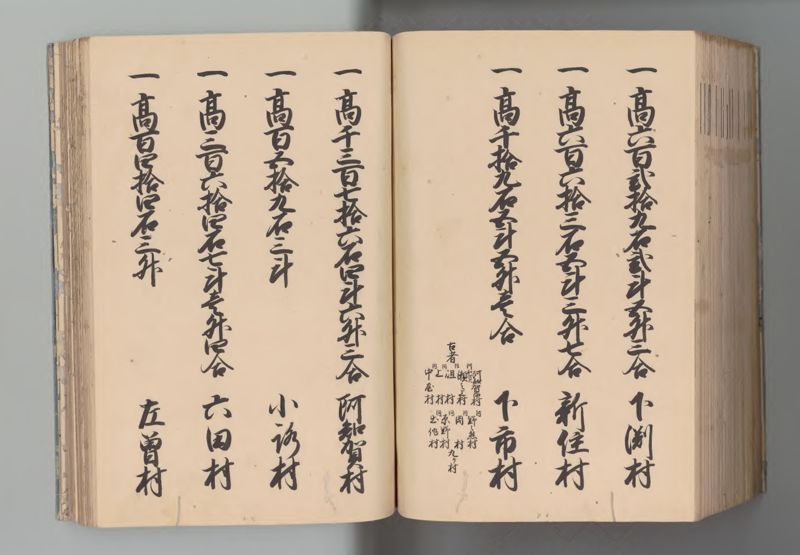 一 高六百弐拾九石弐斗五升二合 下渕村
一 高六百六拾三石五斗三升七合 新住村
一 高千拾九石五斗五升壱合 下市村
阿知賀村 野々熊村
瀬之上村 岡村 九ケ村
沮村 原野村
上村 立作村
中屋村
右者
一 高千三百七拾六石四斗六升二合 阿知賀村
一 高百五拾九石三斗 小路村
一 高三百六拾四石七斗壱升四合 六田村
一 高百四拾四石三升 左曽村